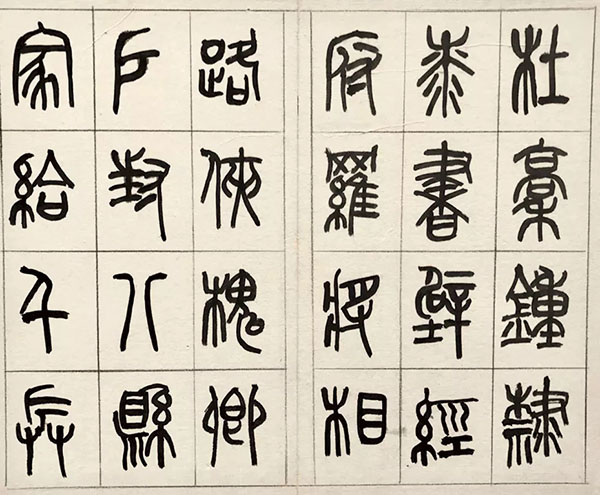 杜稾鍾隸
桼書壁經
府羅將相
路俠槐卿
戶封八縣
家給千兵